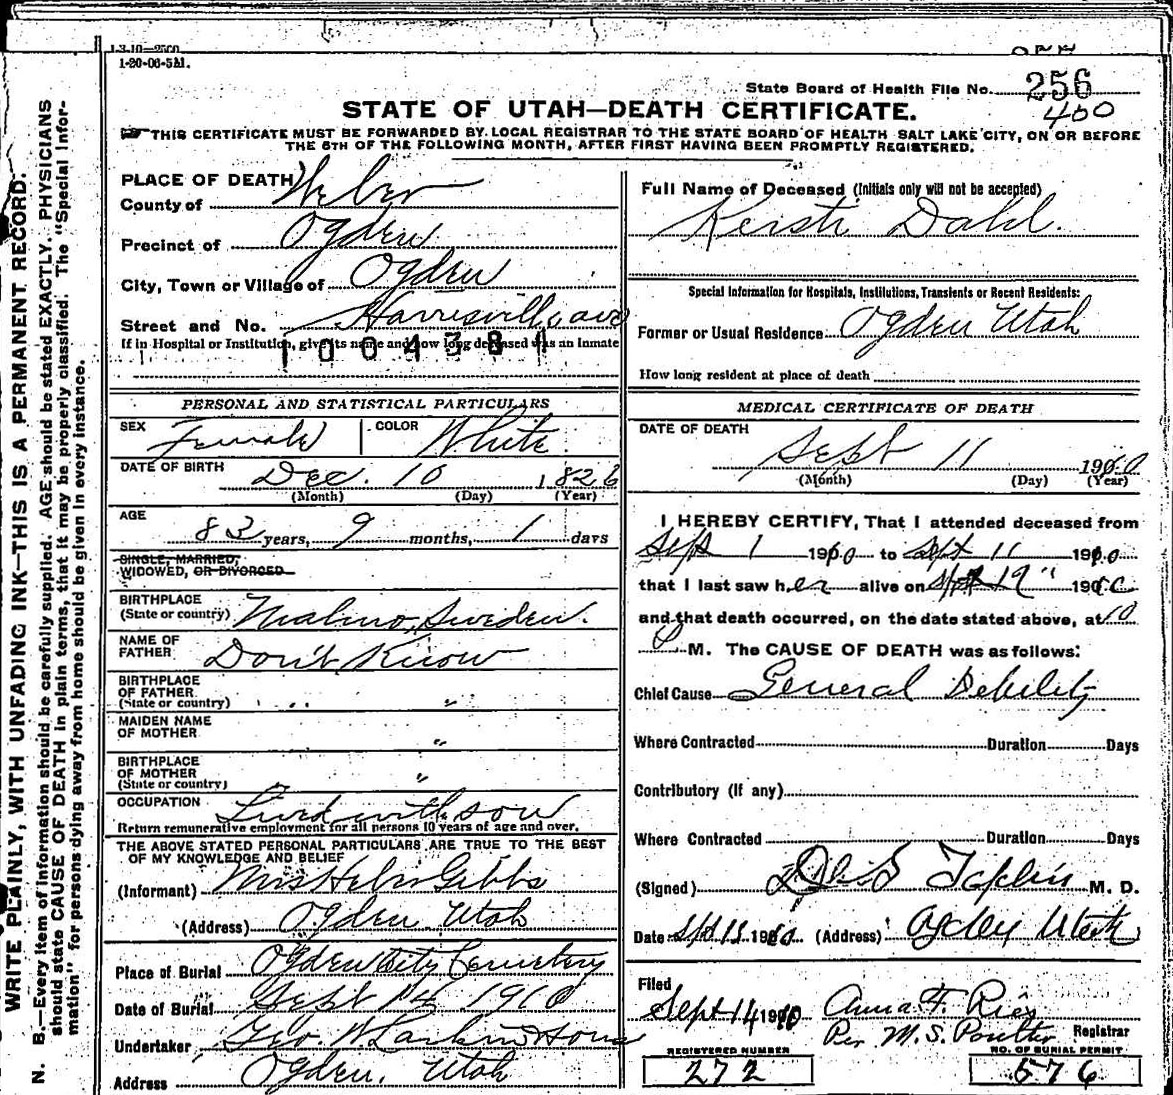 1-3-10—2500
1-20-06-5M.
State Board of Health File No. 256
400
STATE OF UTAH—DEATH CERTIFICATE.
THIS CERTIFICATE MUST BE FORWARDED BY LOCAL REGISTRAR TO THE STATE BOARD OF HEALTH SALT LAKE CITY, ON OR BEFORE
THE 5TH OF THE FOLLOWING MONTH, AFTER FIRST HAVING BEEN PROMPTLY REGISTERED.
WRITE PLAINLY, WITH UNFADING INK—THIS IS A PERMANENT RECORD.
N. B.—Every item of information should be carefully supplied. AGE should be stated EXACTLY. PHYSICIANS
should state CAUSE OF DEATH in plain terms, that it may be properly classified. The "Special Infor-
mation" for persons dying away from home should be given in every instance.
PLACE OF DEATH
County of Weber
Precinct of Ogden
City, Town or Village of Ogden
Street and No. Harrisville ave
If in Hospital or Institution, give its name and how long deceased was an inmate
1004381
PERSONAL AND STATISTICAL PARTICULARS
SEX Female COLOR White
DATE OF BIRTH Dec. 10 1826
(Month) (Day) (Year)
AGE
83 years, 9 months, 1 days
SINGLE, MARRIED,
WIDOWED, OR DIVORCED
BIRTHPLACE
(State or country) Malmo, Sweden.
NAME OF
FATHER Don't Know
BIRTHPLACE
OF FATHER "
(State or country)
MAIDEN NAME
OF MOTHER "
BIRTHPLACE
OF MOTHER "
(State or country)
OCCUPATION Lived with son
Return remunerative employment for all persons 10 years of age and over.
THE ABOVE STATED PERSONAL PARTICULARS ARE TRUE TO THE BEST
OF MY KNOWLEDGE AND BELIEF
(Informant) Mrs Heber Gibbs
(Address) Ogden. Utah
Place of Burial Ogden City Cemetery
Date of Burial Sept 14 1910
Undertaker Geo W Larkin & Sons
Address Ogden. Utah
Full Name of Deceased (Initials only will not be accepted)
Kersti Dahl.
Special Information for Hospitals, Institutions, Transients or Recent Residents:
Former or Usual Residence Ogden Utah
How long resident at place of death
MEDICAL CERTIFICATE OF DEATH
DATE OF DEATH
Sept 11 1910
(Month) (Day) (Year)
I HEREBY CERTIFY, That I attended deceased from
Sept 1 1910 to Sept 11 1910
that I last saw her alive on Sept 1910
and that death occurred, on the date stated above, at 10
P. M. The CAUSE OF DEATH was as follows:
Chief Cause General Debility
Where Contracted Duration Days
Contributory (if any)
Where Contracted Duration Days
(Signed) Taplin M. D.
Date Sept 13 1910 (Address) Ogden Utah
Filed
Sept 14 1910 Anna F. Ries
Per M. S. Poulter Registrar
REGISTERED NUMBER
272
NO. OF BURIAL PERMIT
576